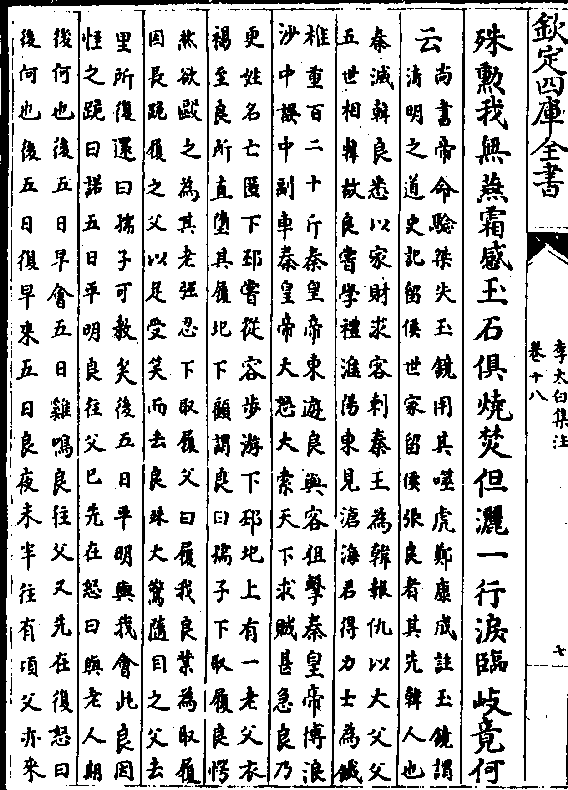 欽定四庫全書
李太白集注
卷十八
七
殊勲我無燕霜感玉石俱燒焚但灑一行淚臨岐竟何
云
尚書帝命驗桀失玉鏡用其噬虎鄭康成註玉鏡謂
清明之道史記留侯世家留侯張良者其先韓人也
秦滅韓良悉以家財求客刺秦王為韓報仇以大父父
五世相韓故良嘗學禮淮陽東見滄海君得力士為鐵
椎重百二十斤秦皇帝東遊良與客狙擊秦皇帝博浪
沙中誤中副車秦皇帝大怒大索天下求賊甚急良乃
更姓名亡匿下邳嘗從容步游下邳圯上有一老父衣
褐至良所直墮其履圯下顧謂良曰孺子下取履良愕
然欲毆之為其老强忍下取履父曰履我良業為取履
因長跪履之父以足受笑而去良殊大驚隨目之父去
里所復還曰孺子可教矣後五日平明與我會此良因
怪之跪曰諾五日平明良往父已先在怒曰與老人期
後何也後五日早會五日雞鳴良往父又先在復怒曰
後何也後五日復早來五日良夜未半往有頃父亦來